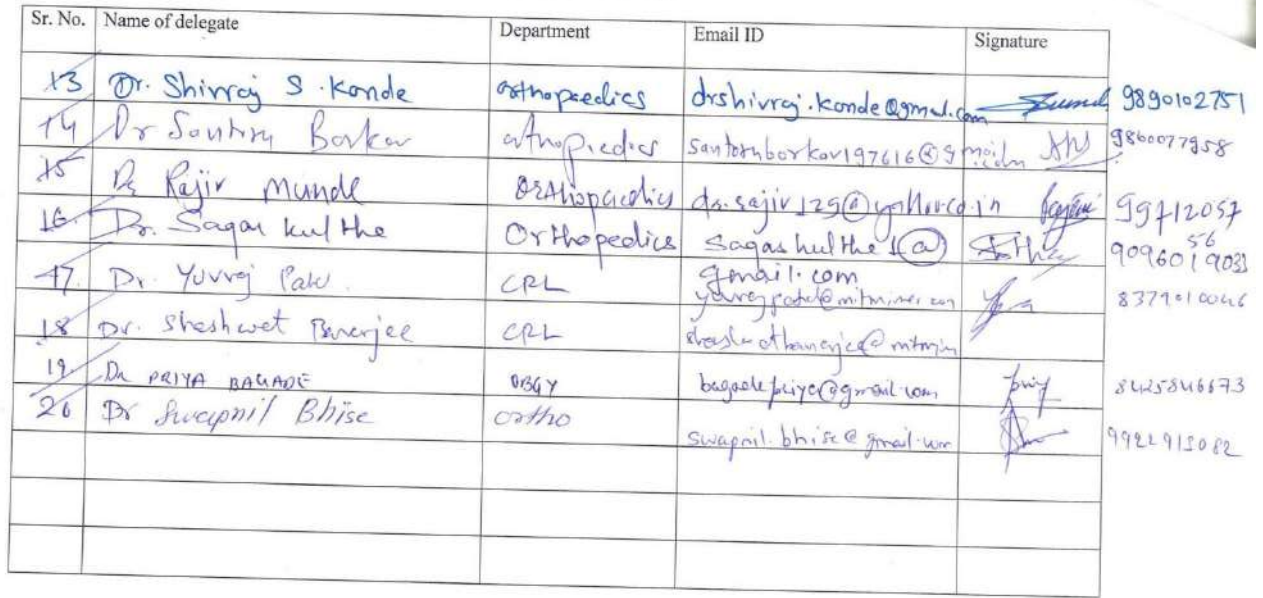 Sr. No. Name of delegate Department Email ID Signature
13 Dr. Shivraj S. Konde orthopaedics drshivraj.konde@gmail.com 9890102751
14 Dr Santosh Borkar orthopaedics santoshborkar197616@gmail.com 9860077958
15 Dr Rajiv Munde Orthopaedics dr.rajiv129@yahoo.co.in 99712057
56
16. Dr. Sagar kulthe Orthopedics sagarkulthe1@ 9096019033
gmail.com
17. Dr. Yuvraj CRL 8379010046
18 Dr. Shashwet Banerjee CRL
19. Dr PRIYA BAGADE OBGY bagadepriya@gmail.com 8425846673
20 Dr Swapnil Bhise ortho
swapnil.bhise@gmail.com 9922913082